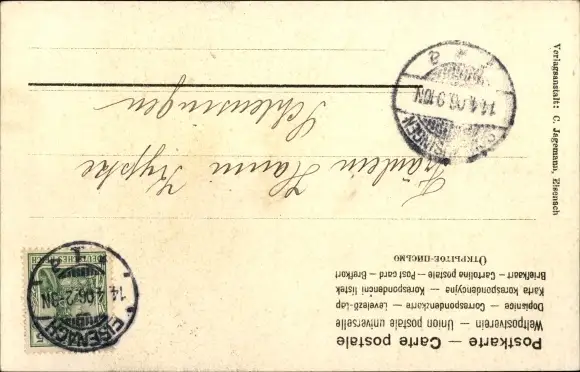 Postkarte — Carte postale
Weltpostverein — Union postale universelle
Dopisnice — Correspondenzkarte — Levelező-Lap
Karta korespondencyjna — Korespondenční lístek
Briefkaart — Cartolina postale — Post card — Brefkort
ОТКРЫТОЕ ПИСЬМО
EISENACH
14.4.06.2-3N
DEUTSCHES REICH
Fräulein Hanni
Schleusingen
SCHLEUSINGEN
14.4.06.9-10N
a
Verlagsanstalt: C. Jagemann, Eisenach